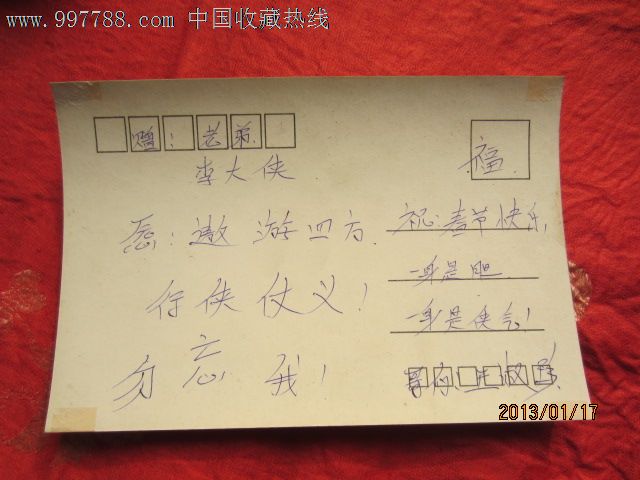 www.997788.com 中国收藏热线
赠：老弟
李大侠
福
愿：遨游四方
行侠仗义！
勿忘我！
祝：春节快乐，
一身是胆
一身是侠气！
2013/01/17